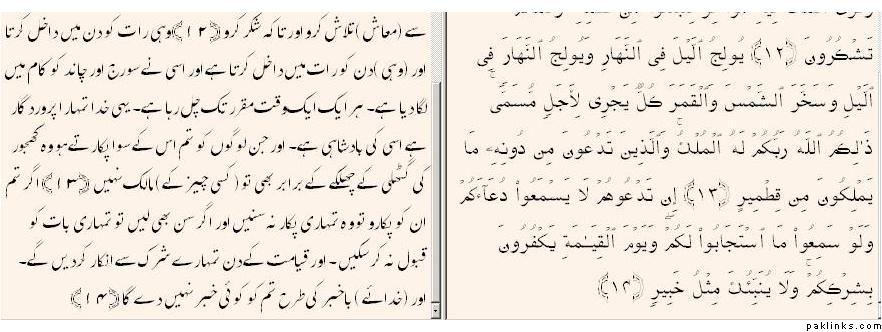 تَشۡكُرُونَ ﴿١٢﴾ يُولِجُ ٱلَّيۡلَ فِى ٱلنَّهَارِ وَيُولِجُ ٱلنَّهَارَ فِى
ٱلَّيۡلِ وَسَخَّرَ ٱلشَّمۡسَ وَٱلۡقَمَرَ كُلٌّ۬ يَجۡرِى لِأَجَلٍ۬ مُّسَمًّى‌ۚ
ذَٲلِڪُمُ ٱللَّهُ رَبُّكُمۡ لَهُ ٱلۡمُلۡكُ‌ۚ وَٱلَّذِينَ تَدۡعُونَ مِن دُونِهِۦ مَا
يَمۡلِكُونَ مِن قِطۡمِيرٍ ﴿١٣﴾ إِن تَدۡعُوهُمۡ لَا يَسۡمَعُواْ دُعَآءَكُمۡ
وَلَوۡ سَمِعُواْ مَا ٱسۡتَجَابُواْ لَكُمۡ‌ۖ وَيَوۡمَ ٱلۡقِيَـٰمَةِ يَكۡفُرُونَ
بِشِرۡكِكُمۡ‌ۚ وَلَا يُنَبِّئُكَ مِثۡلُ خَبِيرٍ۬ ﴿١٤﴾
سے (معاش) تلاش کرو اور تاکہ شکر کرو ﴿۱۲﴾ وہی رات کو دن میں داخل کرتا
اور (وہی) دن کو رات میں داخل کرتا ہے اور اسی نے سورج اور چاند کو کام میں
لگا دیا ہے۔ ہر ایک ایک وقت مقرر تک چل رہا ہے۔ یہی خدا تمہارا پروردگار
ہے اسی کی بادشاہی ہے۔ اور جن لوگوں کو تم اس کے سوا پکارتے ہو وہ کھجور
کی گٹھلی کے چھلکے کے برابر بھی تو (کسی چیز کے) مالک نہیں ﴿۱۳﴾ اگر تم
ان کو پکارو تو وہ تمہاری پکار نہ سنیں اور اگر سن بھی لیں تو تمہاری بات کو
قبول نہ کرسکیں۔ اور قیامت کے دن تمہارے شرک سے انکار کردیں گے۔
اور (خدائے) باخبر کی طرح تم کو کوئی خبر نہیں دے گا ﴿۱۴﴾
paklinks.com